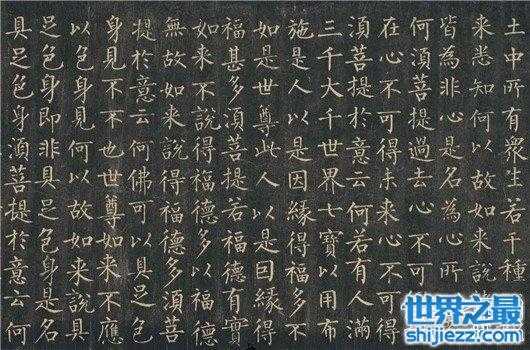 土中所有衆生若千種
来悉知何以故如来說
皆為非心是名為心所
何須菩提過去心不可
在心不可得未来心不可
須菩提於意云何若有人滿
三千大千世界七寶以用布
施是人以是因緣得福多不
如是世尊此人以是因緣得
福甚多須菩提若福德有實
如来不說得福德多以福德
無故如来說得福德多須菩
提於意云何佛可以具足色
身見不不也世尊如来不應
以色身見何以故如来說具
足色身即非具足色身是名
具足色身須菩提於意云何
世界之最
shijiezzi.com